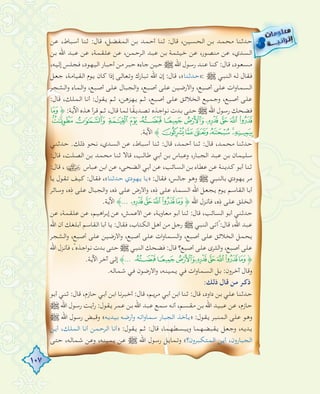 معلومات إثرائية
حدثنا محمد بن الحسين، قال: ثنا أحمد بن المفضل، قال: ثنا أسباط، عن
السدي، عن منصور، عن خيثمة بن عبد الرحمن، عن علقمة، عن عبد الله بن
مسعود، قال: كنا عند رسول الله ﷺ حين جاءه حبر من أحبار اليهود فجلس إليه،
فقال له النبي ﷺ: «حدثنا»، قال: إن الله تبارك وتعالى إذا كان يوم القيامة، جعل
السماوات على أصبع، والأرضين على أصبع، والجبال على أصبع، والماء والشجر
على أصبع، وجميع الخلائق على أصبع، ثم يهزهن، ثم يقول: أنا الملك، قال:
فضحك رسول الله ﷺ حتى بدت نواجذه تصديقا لما قال، ثم قرأ هذه الآية: ﴿ وَمَا
قَدَرُوا۟ ٱللَّهَ حَقَّ قَدْرِهِۦ وَٱلْأَرْضُ جَمِيعًا قَبْضَتُهُۥ يَوْمَ ٱلْقِيَٰمَةِ وَٱلسَّمَٰوَٰتُ مَطْوِيَّٰتٌۢ
بِيَمِينِهِۦ سُبْحَٰنَهُۥ وَتَعَٰلَىٰ عَمَّا يُشْرِكُونَ ﴾ الآية.
حدثنا محمد، قال: ثنا أحمد، قال: ثنا أسباط، عن السدي، نحو ذلك. حدثني
سليمان بن عبد الجبار، وعباس بن أبي طالب، قالا: ثنا محمد بن الصلت، قال:
ثنا أبو كدينة عن عطاء بن السائب، عن أبي الضحى، عن ابن عباس، قال:
مر يهودي بالنبي ﷺ وهو جالس، فقال: «يا يهودي حدثنا»، فقال: كيف تقول يا
أبا القاسم يوم يجعل الله السماء على ذه، والأرض على ذه، والجبال على ذه، وسائر
الخلق على ذه، فأنزل الله ﴿ وَمَا قَدَرُوا۟ ٱللَّهَ حَقَّ قَدْرِهِۦ ...﴾ الآية.
حدثني أبو السائب، قال: ثنا أبو معاوية، عن الأعمش، عن إبراهيم، عن علقمة، عن
عبد الله، قال: أتى النبي ﷺ رجل من أهل الكتاب، فقال: يا أبا القاسم أبلغك أن الله
يحمل الخلائق على أصبع، والسماوات على أصبع، والأرضين على أصبع، والشجر
على أصبع، والثرى على أصبع؟ قال: فضحك النبي ﷺ حتى بدت نواجذه، فأنزل الله
﴿ وَمَا قَدَرُوا۟ ٱللَّهَ حَقَّ قَدْرِهِۦ وَٱلْأَرْضُ جَمِيعًا قَبْضَتُهُۥ ...﴾ إلى آخر الآية.
وقال آخرون: بل السماوات في يمينه، والأرضون في شماله.
ذكر من قال ذلك:
حدثنا علي بن داود، قال: ثنا ابن أبي مريم، قال: أخبرنا ابن أبي حازم، قال: ثني أبو
حازم، عن عبيد الله بن مقسم، أنه سمع عبد الله بن عمر يقول: رأيت رسول الله ﷺ
وهو على المنبر يقول: «يأخذ الجبار سماواته وأرضه بيديه» وقبض رسول الله ﷺ
يديه، وجعل يقبضهما ويبسطهما، قال: ثم يقول: «أنا الرحمن أنا الملك، أين
الجبارون، أين المتكبرون؟» وتمايل رسول الله ﷺ عن يمينه، وعن شماله، حتى
١٠٧